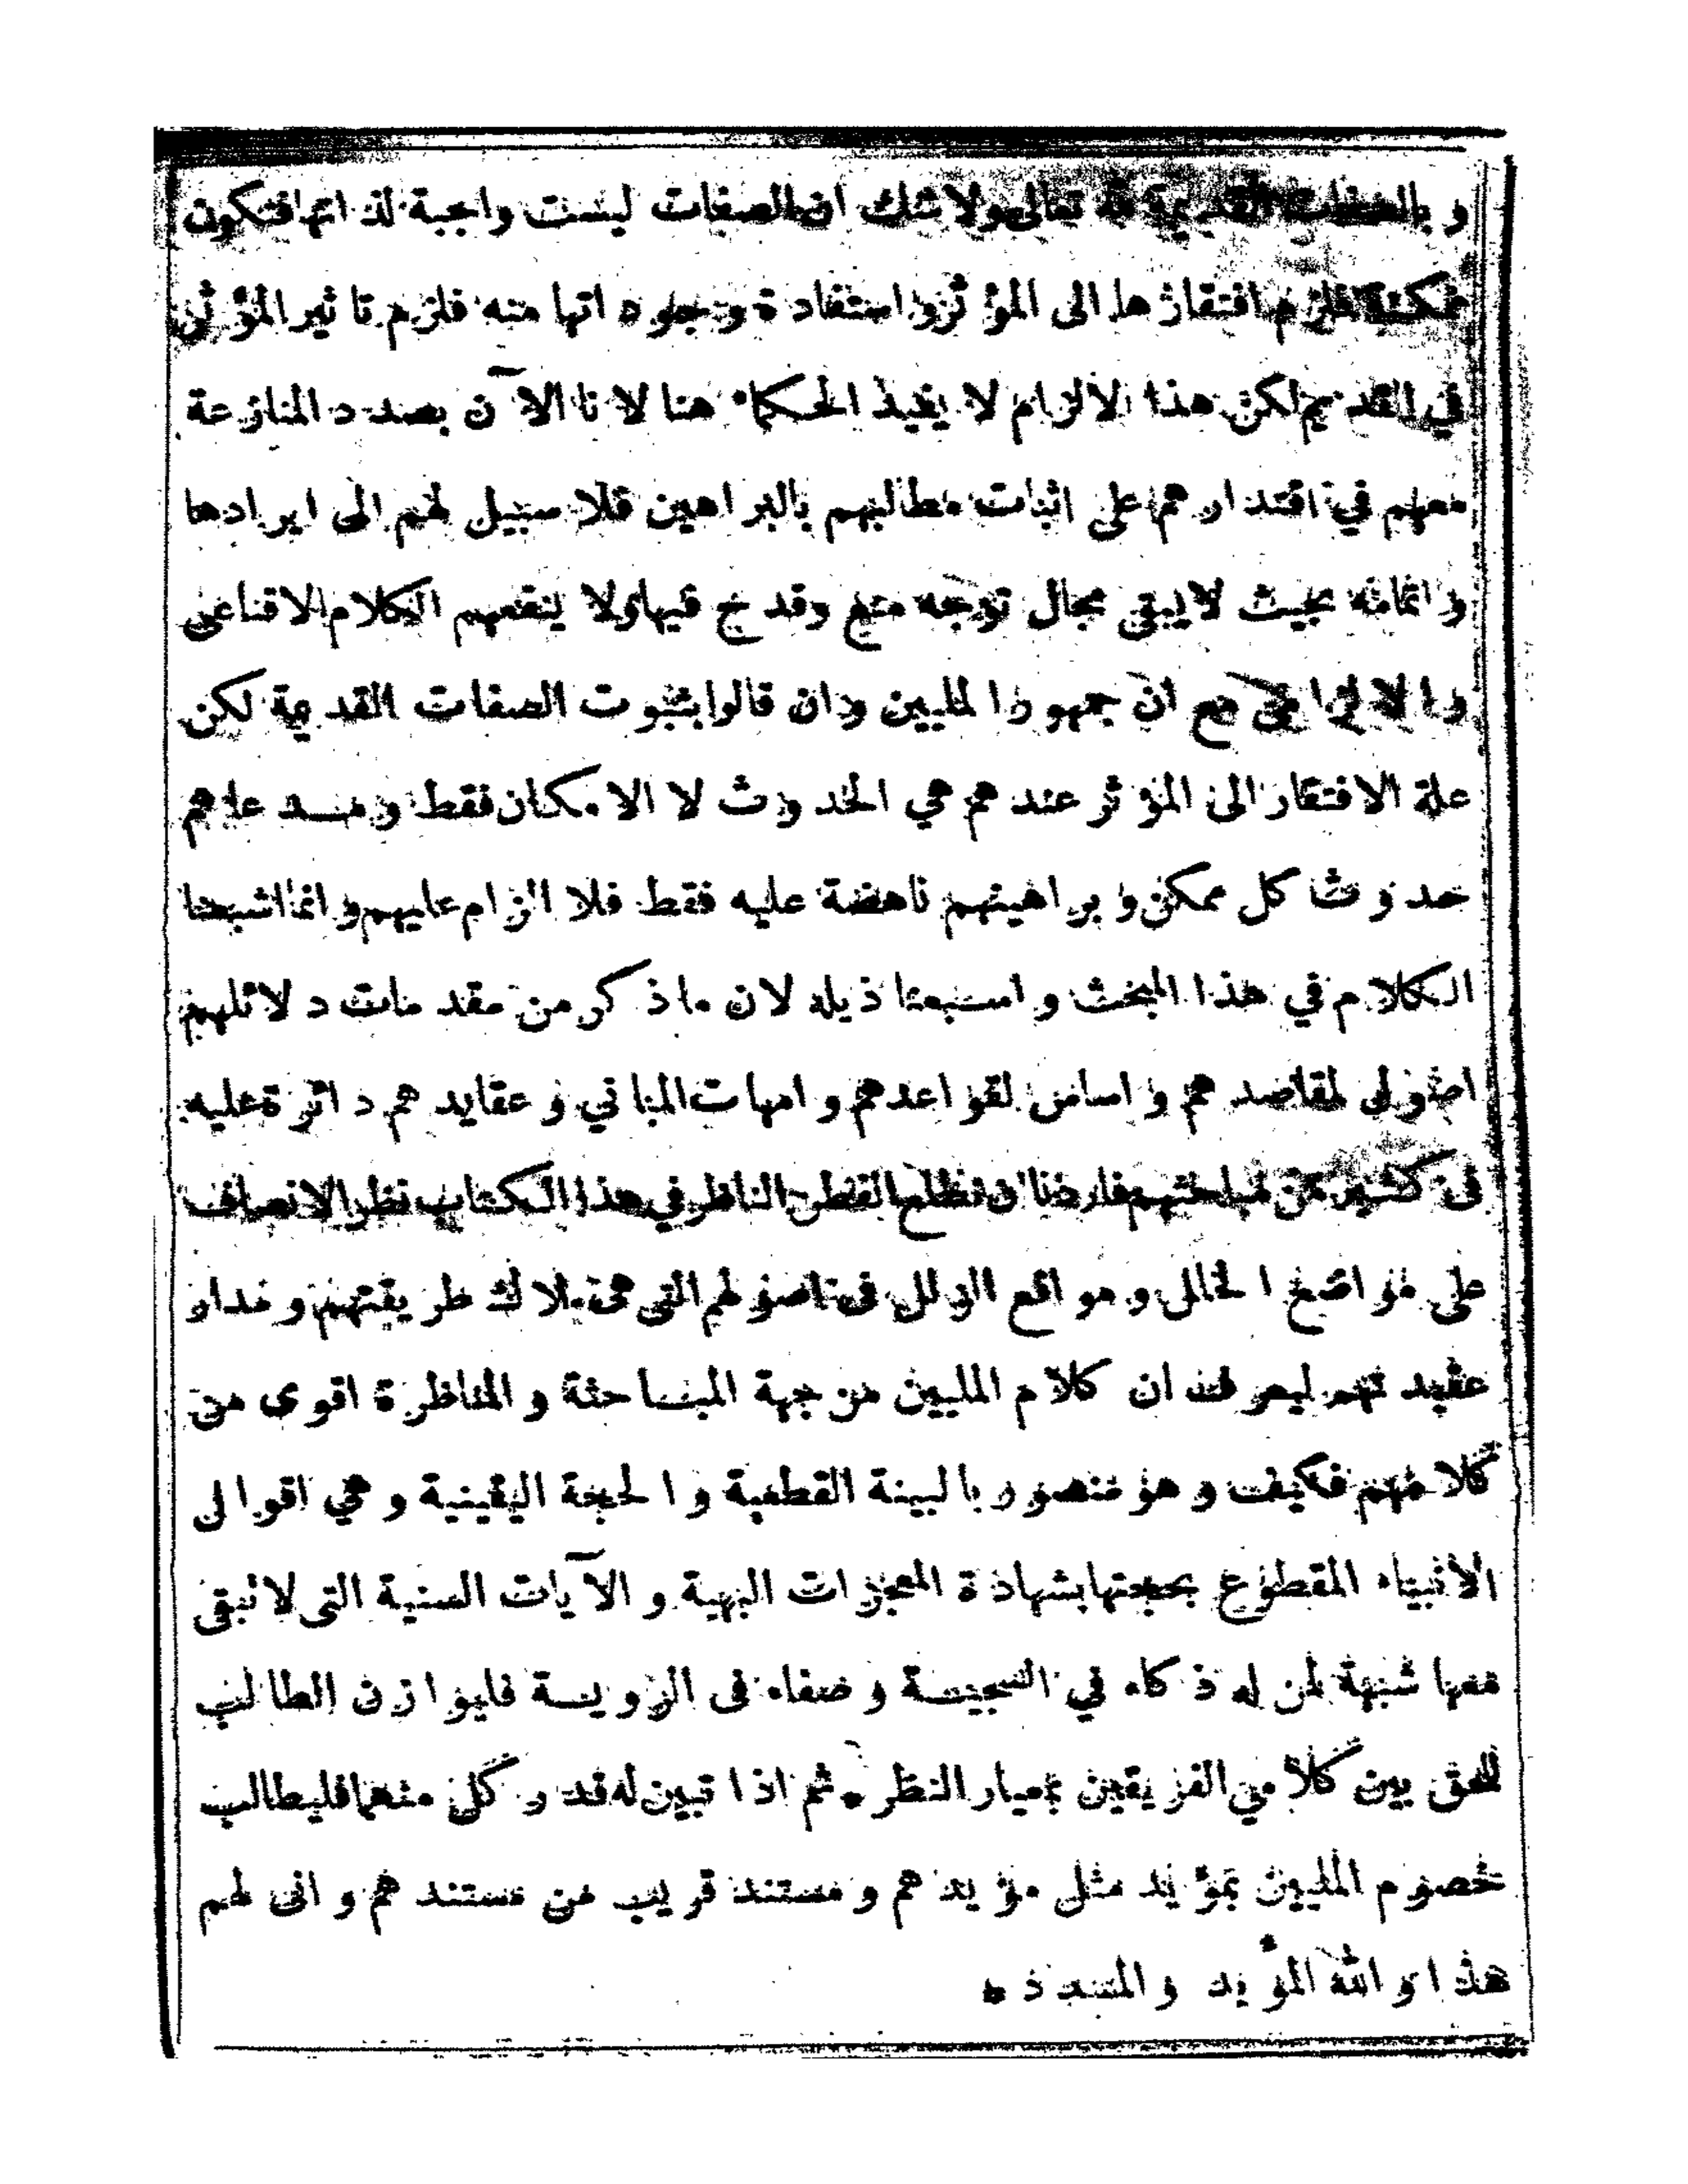 و بالصفات القديمة له تعالى ولا شك ان الصفات ليست واجبة لذ اتها فتكون
ممكنة فلزم افتقارها الى المؤثر واستفادة وجوداتها منه فلزم تاثير المؤثر
في القديم لكن هذا الالزام لا يفيد الحكماء هنا لانا الآن بصدد المنازعة
معهم في اقتدارهم على اثبات مطالبهم بالبراهين فلا سبيل لهم الى ايرادها
و اتمامه بحيث لا يبقى مجال توجه منع وقدح فيها ولا ينفعهم الكلام الاقناعى
والالزامى مع ان جمهور المليين وان قالوا بثبوت الصفات القديمة لكن
علة الافتقار الى المؤثر عندهم هي الحدوث لا الامكان فقط ومدعاهم
حدوث كل ممكن و براهينهم ناهضة عليه فقط فلا الزام عليهم وانما اشبعنا
الكلام في هذا المبحث و اسبعنا ذيله لان ما ذكر من مقدمات دلائلهم
اصول لمقاصدهم و اساس لقواعدهم و امهات المباني و عقايدهم دائرة عليه
فى كثير من مباحثهم فاردنا ان نطلع الفطن الناظر في هذا الكتاب نظر الانصاف
على مواضع الخلل و مواقع الزلل فى اصولهم التى هى ملاك طريقتهم و مدار
عقيدتهم ليعرف ان كلام المليين من جهة المباحثة و المناظرة اقوى من
كلامهم فكيف و هو منصور بالبينة القطعية و الحجة اليقينية و هي اقوال
الانبياء المقطوع بحجتها بشهادة المعجزات البهية و الآيات السنية التى لا تبقى
معها شبهة لمن له ذكاء في السجية و صفاء فى الروية فليوازن الطالب
للحق بين كلامي الفريقين بمعيار النظر ٠ ثم اذا تبين له قدر كل منهما فليطالب
خصوم المليين بمؤيد مثل مؤيدهم و مستند قريب من مستندهم و انى لهم
هذا و الله المؤيد و المسدد ٠